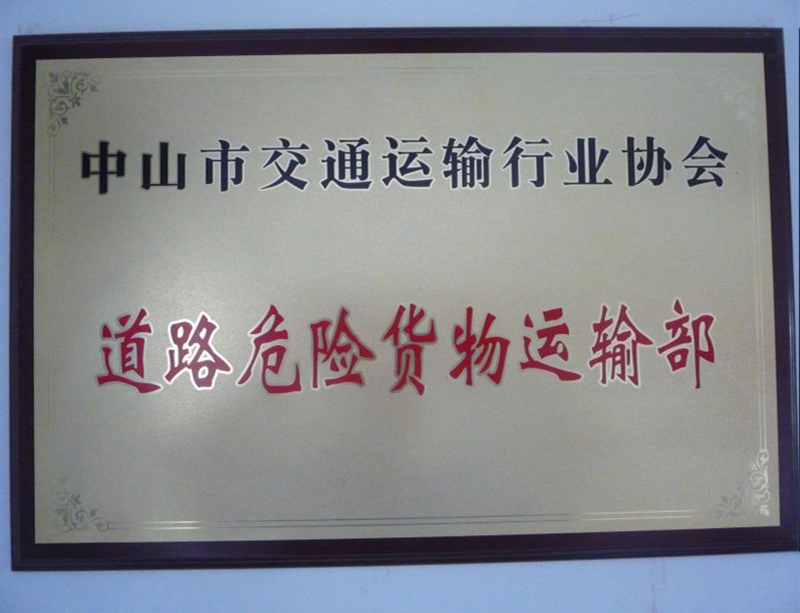 中山市交通运输行业协会
道路危险货物运输部